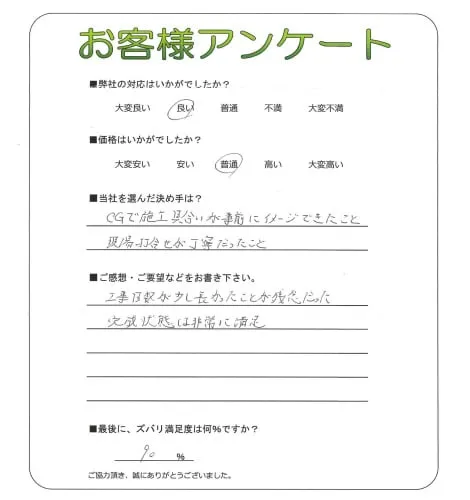 お客様アンケート
■弊社の対応はいかがでしたか?
大変良い 良い 普通 不満 大変不満
■価格はいかがでしたか?
大変安い 安い 普通 高い 大変高い
■当社を選んだ決め手は?
CGで施工具合いが事前にイメージできたこと
現場打合せが丁寧だったこと
■ご感想・ご要望などをお書き下さい。
工事日数が少し長かったことが残念だった
完成状態は非常に満足
■最後に、ズバリ満足度は何%ですか?
90 %
ご協力頂き、誠にありがとうございました。